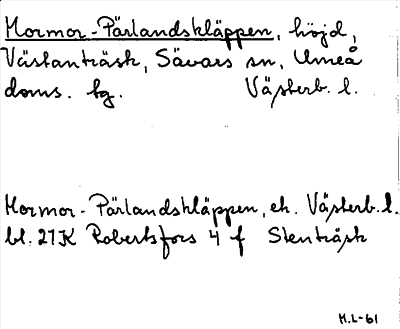 Mormor-Pärlandskläppen, höjd,
Västanträsk, Sävars sn, Umeå
doms. tg. Västerb. l.
Mormor-Pärlandskläppen, ek. Västerb. l.
bl. 21K Robertsfors 4 f Stenträsk
M.L-61